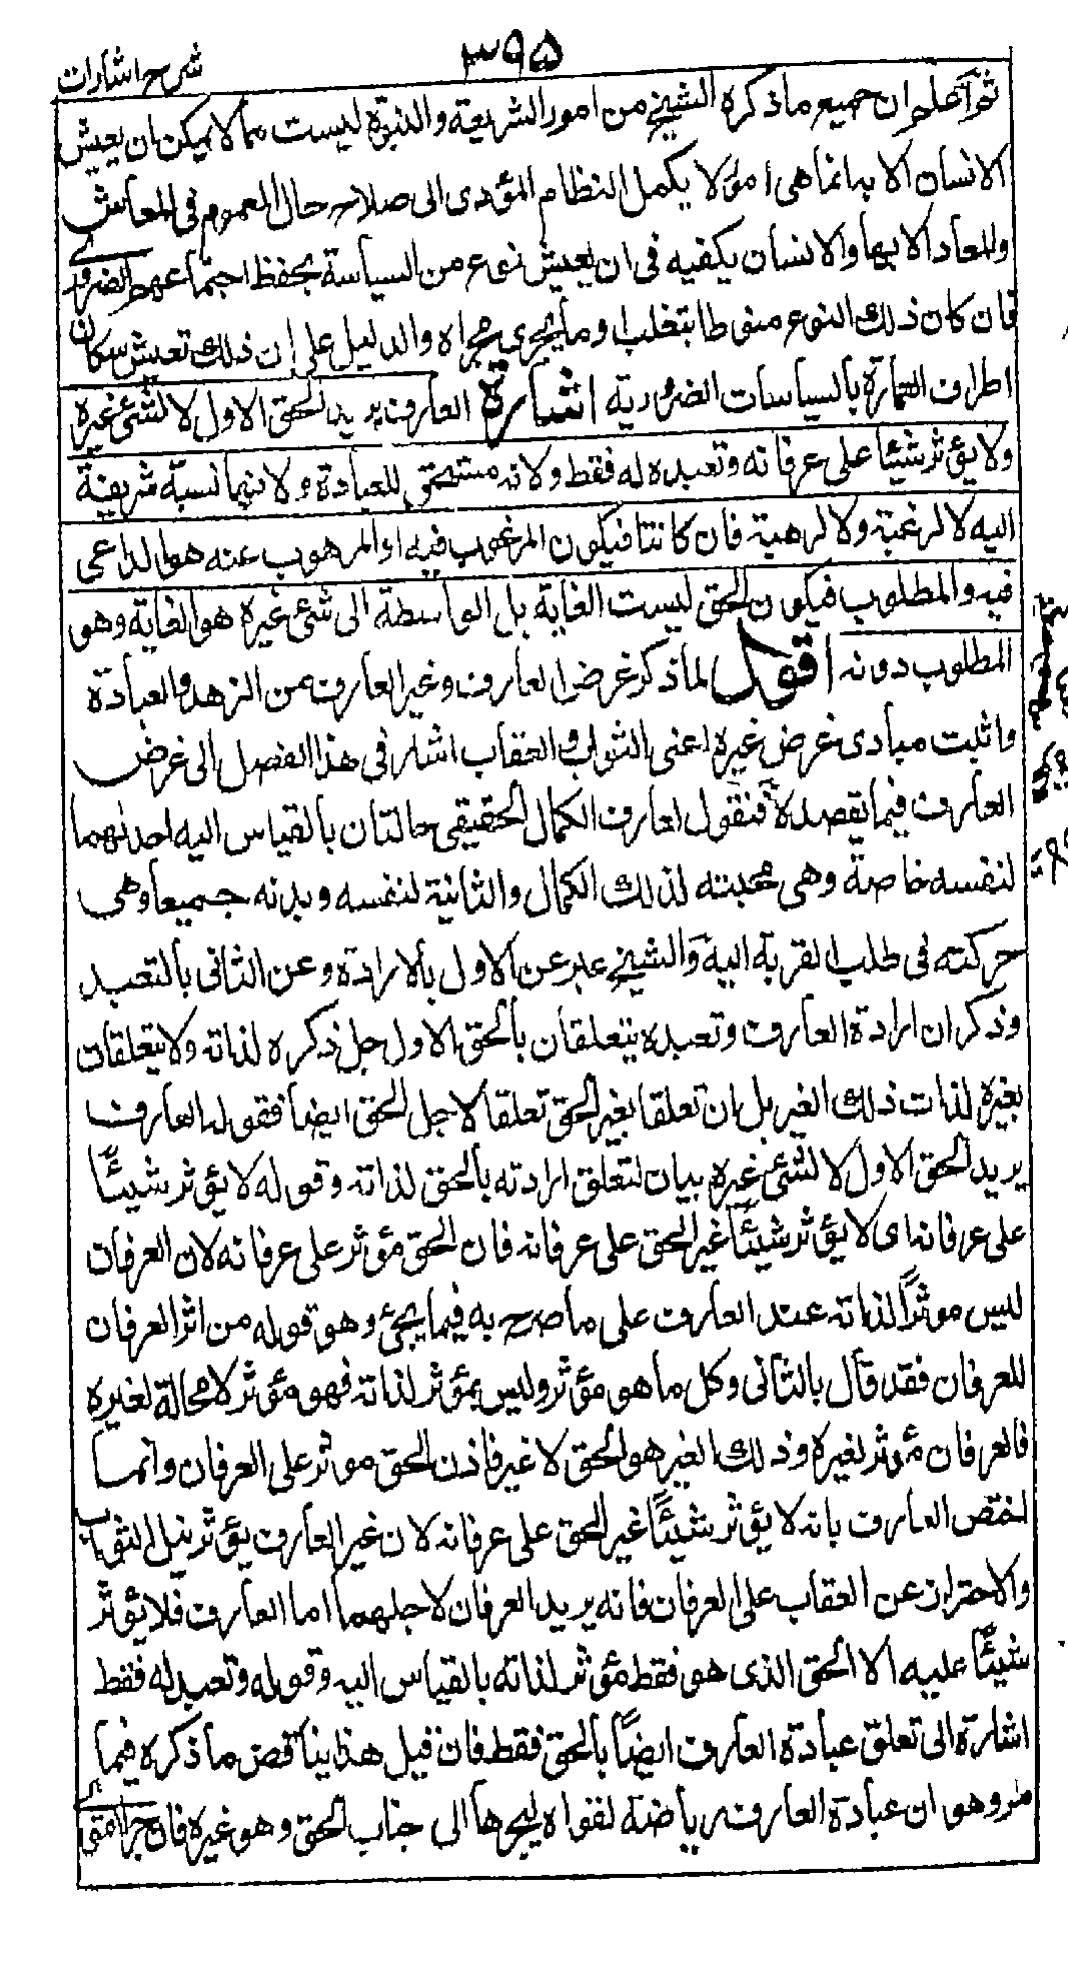 شرح اشارات
۳۹۵
ثم اعلم ان جميع ما ذكره الشيخ من امور الشريعة والنبوة ليست مما لا يمكن ان يعيش
الانسان الا بها انما هى امور لا يكمل النظام المؤدى الى صلاح حال العموم فى المعاش
والمعاد الا بها والانسان يكفيه فى ان يعيش نوع من السياسة يحفظ اجتماعهم الضرورى
فان كان ذلك النوع منوطا بتغلب او ما يجرى مجراه والدليل على ان ذلك تعيش سكان
اطراف العمارة بالسياسات الضرورية اشارة العارف يريد الحق الاول لا لشئ غيره
ولا يؤثر شيئا على عرفانه وتعبده له فقط ولانه مستحق للعبادة ولانها نسبة شريفة
اليه لا لرغبة ولا لرهبة فان كانتا فيكون المرغوب فيه او المرهوب عنه هو الداعى
فيه والمطلوب فيكون الحق ليست الغاية بل الواسطة الى شئ غيره هو الغاية وهو
المطلوب دونه اقول لما ذكر غرض العارف وغير العارف من الزهد والعبادة
واثبت مبادى غرض غيره اعنى الثواب والعقاب اشار فى هذا الفصل الى غرض
العارف فيما يقصده فنقول لعارف الكمال الحقيقى حالتان بالقياس اليه احدٰهما
لنفسه خاصة وهى محبته لذلك الكمال والثانية لنفسه وبدنه جميعا وهى
حركته فى طلب القربة اليه والشيخ عبر عن الاول بالارادة وعن الثانى بالتعبد
وذكر ان ارادة العارف وتعبده يتعلقان بالحق الاول جل ذكره لذاته ولا يتعلقان
بغيره لذات ذلك الغير بل ان تعلقا بغير الحق تعلقا لاجل الحق ايضا فقوله العارف
يريد الحق الاول لا لشئ غيره بيان لتعلق ارادته بالحق لذاته وقوله لا يؤثر شيئًا
على عرفانه اى لا يؤثر شيئًا غير الحق على عرفانه فان الحق مؤثر على عرفانه لان العرفان
ليس موثرًا لذاته عند العارف على ما صرح به فيما يجئ وهو قوله من اثر العرفان
للعرفان فقد قال بالثانى وكل ما هو مؤثر وليس بمؤثر لذاته فهو مؤثر لا محالة لغيره
فالعرفان مؤثر لغيره وذلك الغير هو الحق لا غير فاذن الحق موثر على العرفان وانما
اختص العارف بانه لا يؤثر شيئًا غير الحق على عرفانه لان غير العارف يؤثر نيل الثواب
والاحتراز عن العقاب على العرفان فانه يريد العرفان لاجلهما اما العارف فلا يؤثر
شيئًا عليه الا الحق الذى هو فقط مؤثر لذاته بالقياس اليه وقوله وتعبده له فقط
اشارة الى تعلق عبادة العارف ايضًا بالحق فقط فان قيل هذا يناقض ما ذكره فيما
مر وهو ان عبادة العارف رياضة لقواه ليجرها الى جناب الحق وهو غيره فان جر القوى